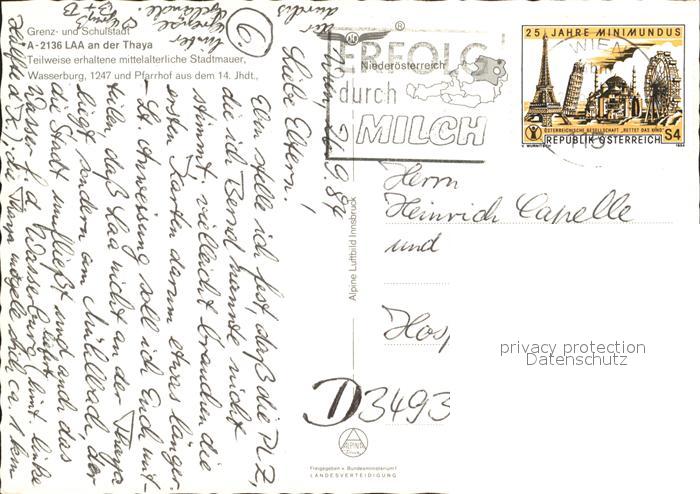 Grenz- und Schulstadt
A-2136 LAA an der Thaya
Teilweise erhaltene mittelalterliche Stadtmauer,
Wasserburg, 1247 und Pfarrhof aus dem 14. Jhdt.,
Niederösterreich
ERFOLG
durch
MILCH
WIEN
25 JAHRE MINIMUNDUS
ÖSTERREICHISCHE GESELLSCHAFT "RETTET DAS KIND"
REPUBLIK ÖSTERREICH S4
6.
Wien, 26.9.84
Liebe Eltern!
Eben stelle ich fest, daß die PLZ,
die ich Bernd nannte nicht
stimmt, vielleicht brauchen die
ersten Karten darum etwas länger.
- Ortsweisung soll ich Euch mit-
teilen, daß Laa nicht an der Thaya
liegt sondern am Mühlbach der
die Stadt umfließt und auch das
Wasser f. d. Wasserburg liefert (hint. linke
Herrn
Heinrich Capelle
und
Hos
D3493
Alpine Luftbild Innsbruck
ALPINE
Freigegeben v. Bundesministerium f.
LANDESVERTEIDIGUNG
privacy protection
Datenschutz